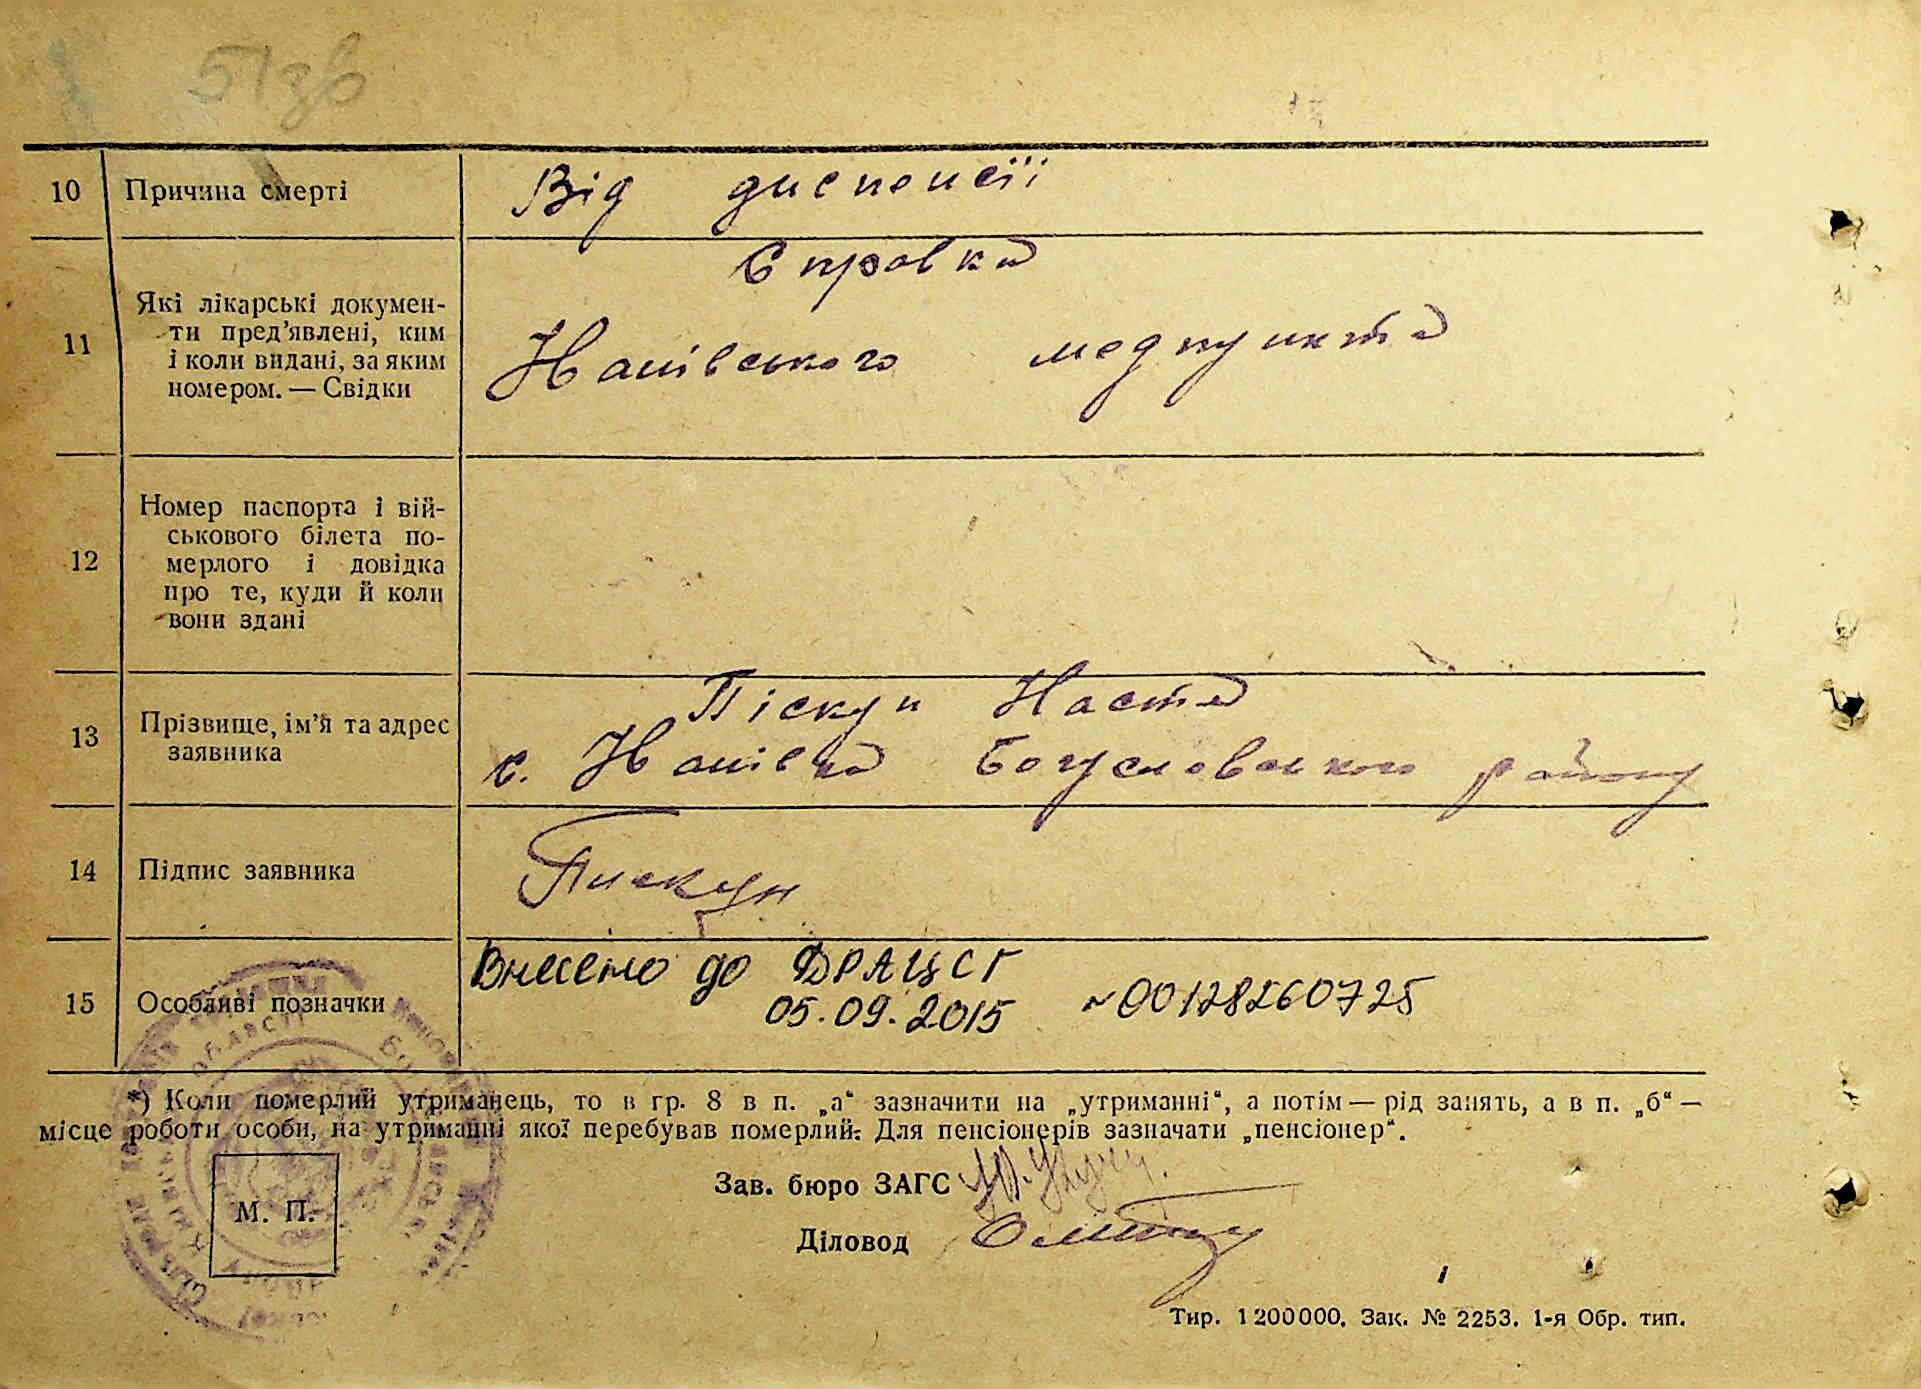 51зв
10 Причина смерті Від диспепсії
11 Які лікарські докумен-
ти пред'явлені, ким
і коли видані, за яким
номером. — Свідки
Справка
медпункта
12 Номер паспорта і вій-
ськового білета по-
мерлого і довідка
про те, куди й коли
вони здані
13 Прізвище, ім'я та адрес
заявника
Піскун Настя
с. Богуславського району
14 Підпис заявника Пискун
15 Особливі позначки
Внесено до ДРАЦСГ
05.09.2015 №00128260725
*) Коли померлий утриманець, то в гр. 8 в п. „а“ зазначити на „утриманні“, а потім — рід занять, а в п. „б“ —
місце роботи особи, на утриманні якої перебував померлий. Для пенсіонерів зазначати „пенсіонер“.
М. П.
Зав. бюро ЗАГС
Діловод
Тир. 1200000. Зак. № 2253. 1-я Обр. тип.